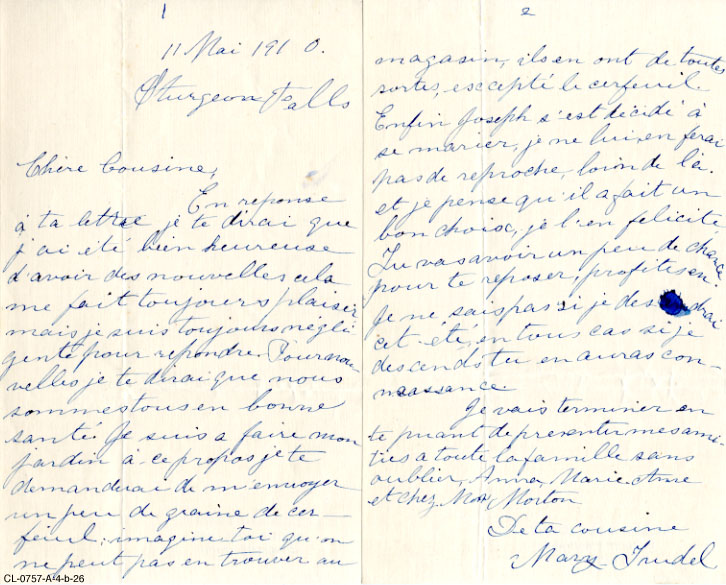 1
11 Mai 1910.
Sturgeon Falls
Chère Cousine,
En reponse
à ta lettre je te dirai que
j'ai été bien heureuse
d'avoir des nouvelles cela
me fait toujours plaisir
mais je suis toujours négli
gente pour repondre. Pour nou
velles je te dirai que nous
sommes tous en bonne
santé. Je suis a faire mon
jardin à ce propos je te
demanderai de m'envoyer
un peu de graine de cer-
feuil; imagine toi qu'on
ne peut pas en trouver au
CL-0757-A-4-b-26
2
magasin, ils en ont de toutes
sortes, excepté le cerfeuil
Enfin Joseph s'est décidé à
se marier, je ne lui en ferai
pas de reproche, loin de là.
et je pense qu'il a fait un
bon choix, je l'en felicite
Tu vas avoir un peu de chance
pour te reposer, profites en.
Je ne sais pas si je descendrai
cet été, en tous cas si je
descends tu en auras con-
naissance
Je vais terminer en
te priant de presenter mes ami-
tiés a toute la famille sans
oublier, Anna, Marie Anne
et chez Morton
De ta cousine
Mary Trudel